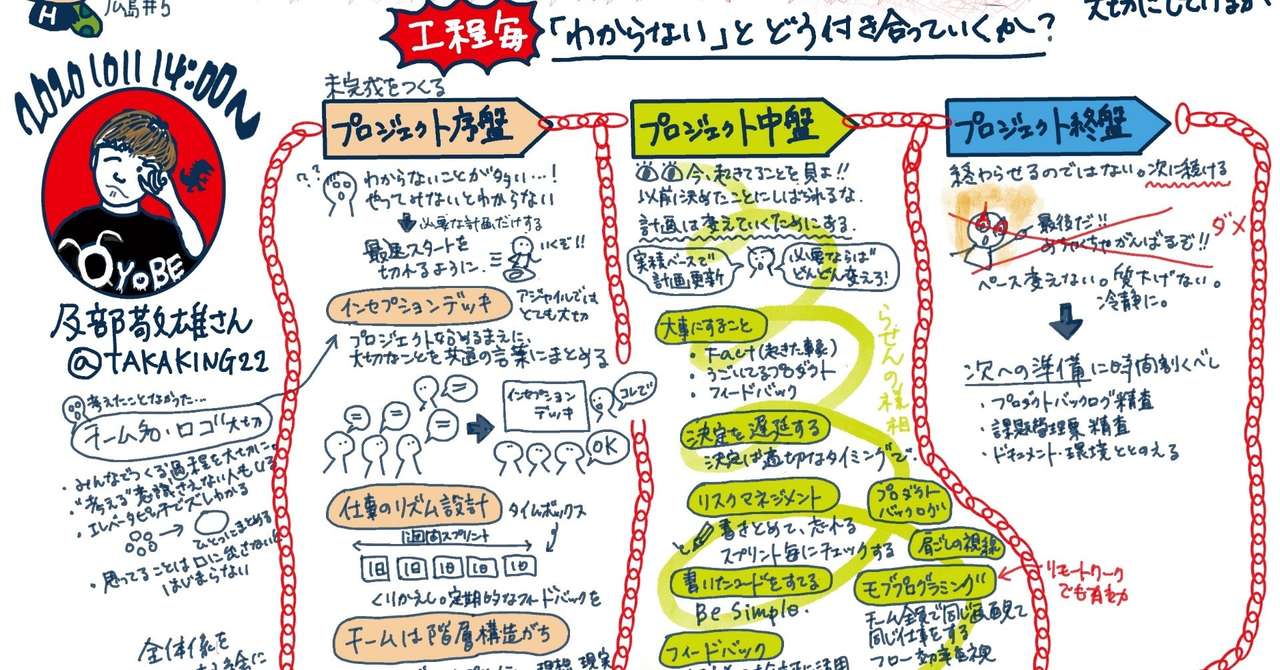 H
広島#5
大切にしていけるか
工程毎「わからない」とどう付き合っていくか?
20201011 14:00〜
QYOBE
及部敬雄さん
@TAKAKING22
考えたことなかった...
チーム名・ロゴ 大切
・みんなでつくる過程を大切に。
・エレベータピッチでズレわかる
ひとつにまとめる
・思ってることは口に出さないと
はじまらない
全体像を
未完成をつくる
プロジェクト序盤
わからないことが多い...!
やってみないとわからない
必要な計画だけする
最速スタートを
切れるように.
いくぞ!!
インセプションデッキ
アジャイルでは
とても大切
プロジェクトな始めるまえに、
大切なことを共通の言葉にまとめる
インセプション
デッキ
コレで
OK
仕事のリズム設計
タイムボックス
1週間スプリント
1日 1日 1日 1日 1日
くりかえし。定期的なフィードバックを
チームは階層構造がち
理想 現実
プロジェクト中盤
今、起きてることを見よ!!
以前に決めたことにしばられるな.
計画は変えていくためにある.
実績ベースで
計画更新
必要ならば
どんどん変えろ!
大事にすること
・Fact(起きた事象)
・うごいてるプロダクト
・フィードバック
らせんの様相
決定を遅延する
決定は適切なタイミングで.
リスクマネジメント
書きとめて、忘れる
スプリント毎にチェックする
プロダクト
バックログ
肩ごしの視線
書いたコードをすてる
Be Simple.
モブプログラミング
リモートワーク
でも有効
チーム全員で同じ画面見て
同じ仕事をする
フロー効率重視
フィードバック
プロジェクト終盤
終わらせるのではない。次に続ける
最後だ!!
めちゃくちゃがんばるぞ!!
ダメ
ペース変えない。質下げない。
冷静に。
次への準備に時間割くべし
・プロダクトバックログ精査
・課題管理票 精査
・ドキュメント・環境ととのえる